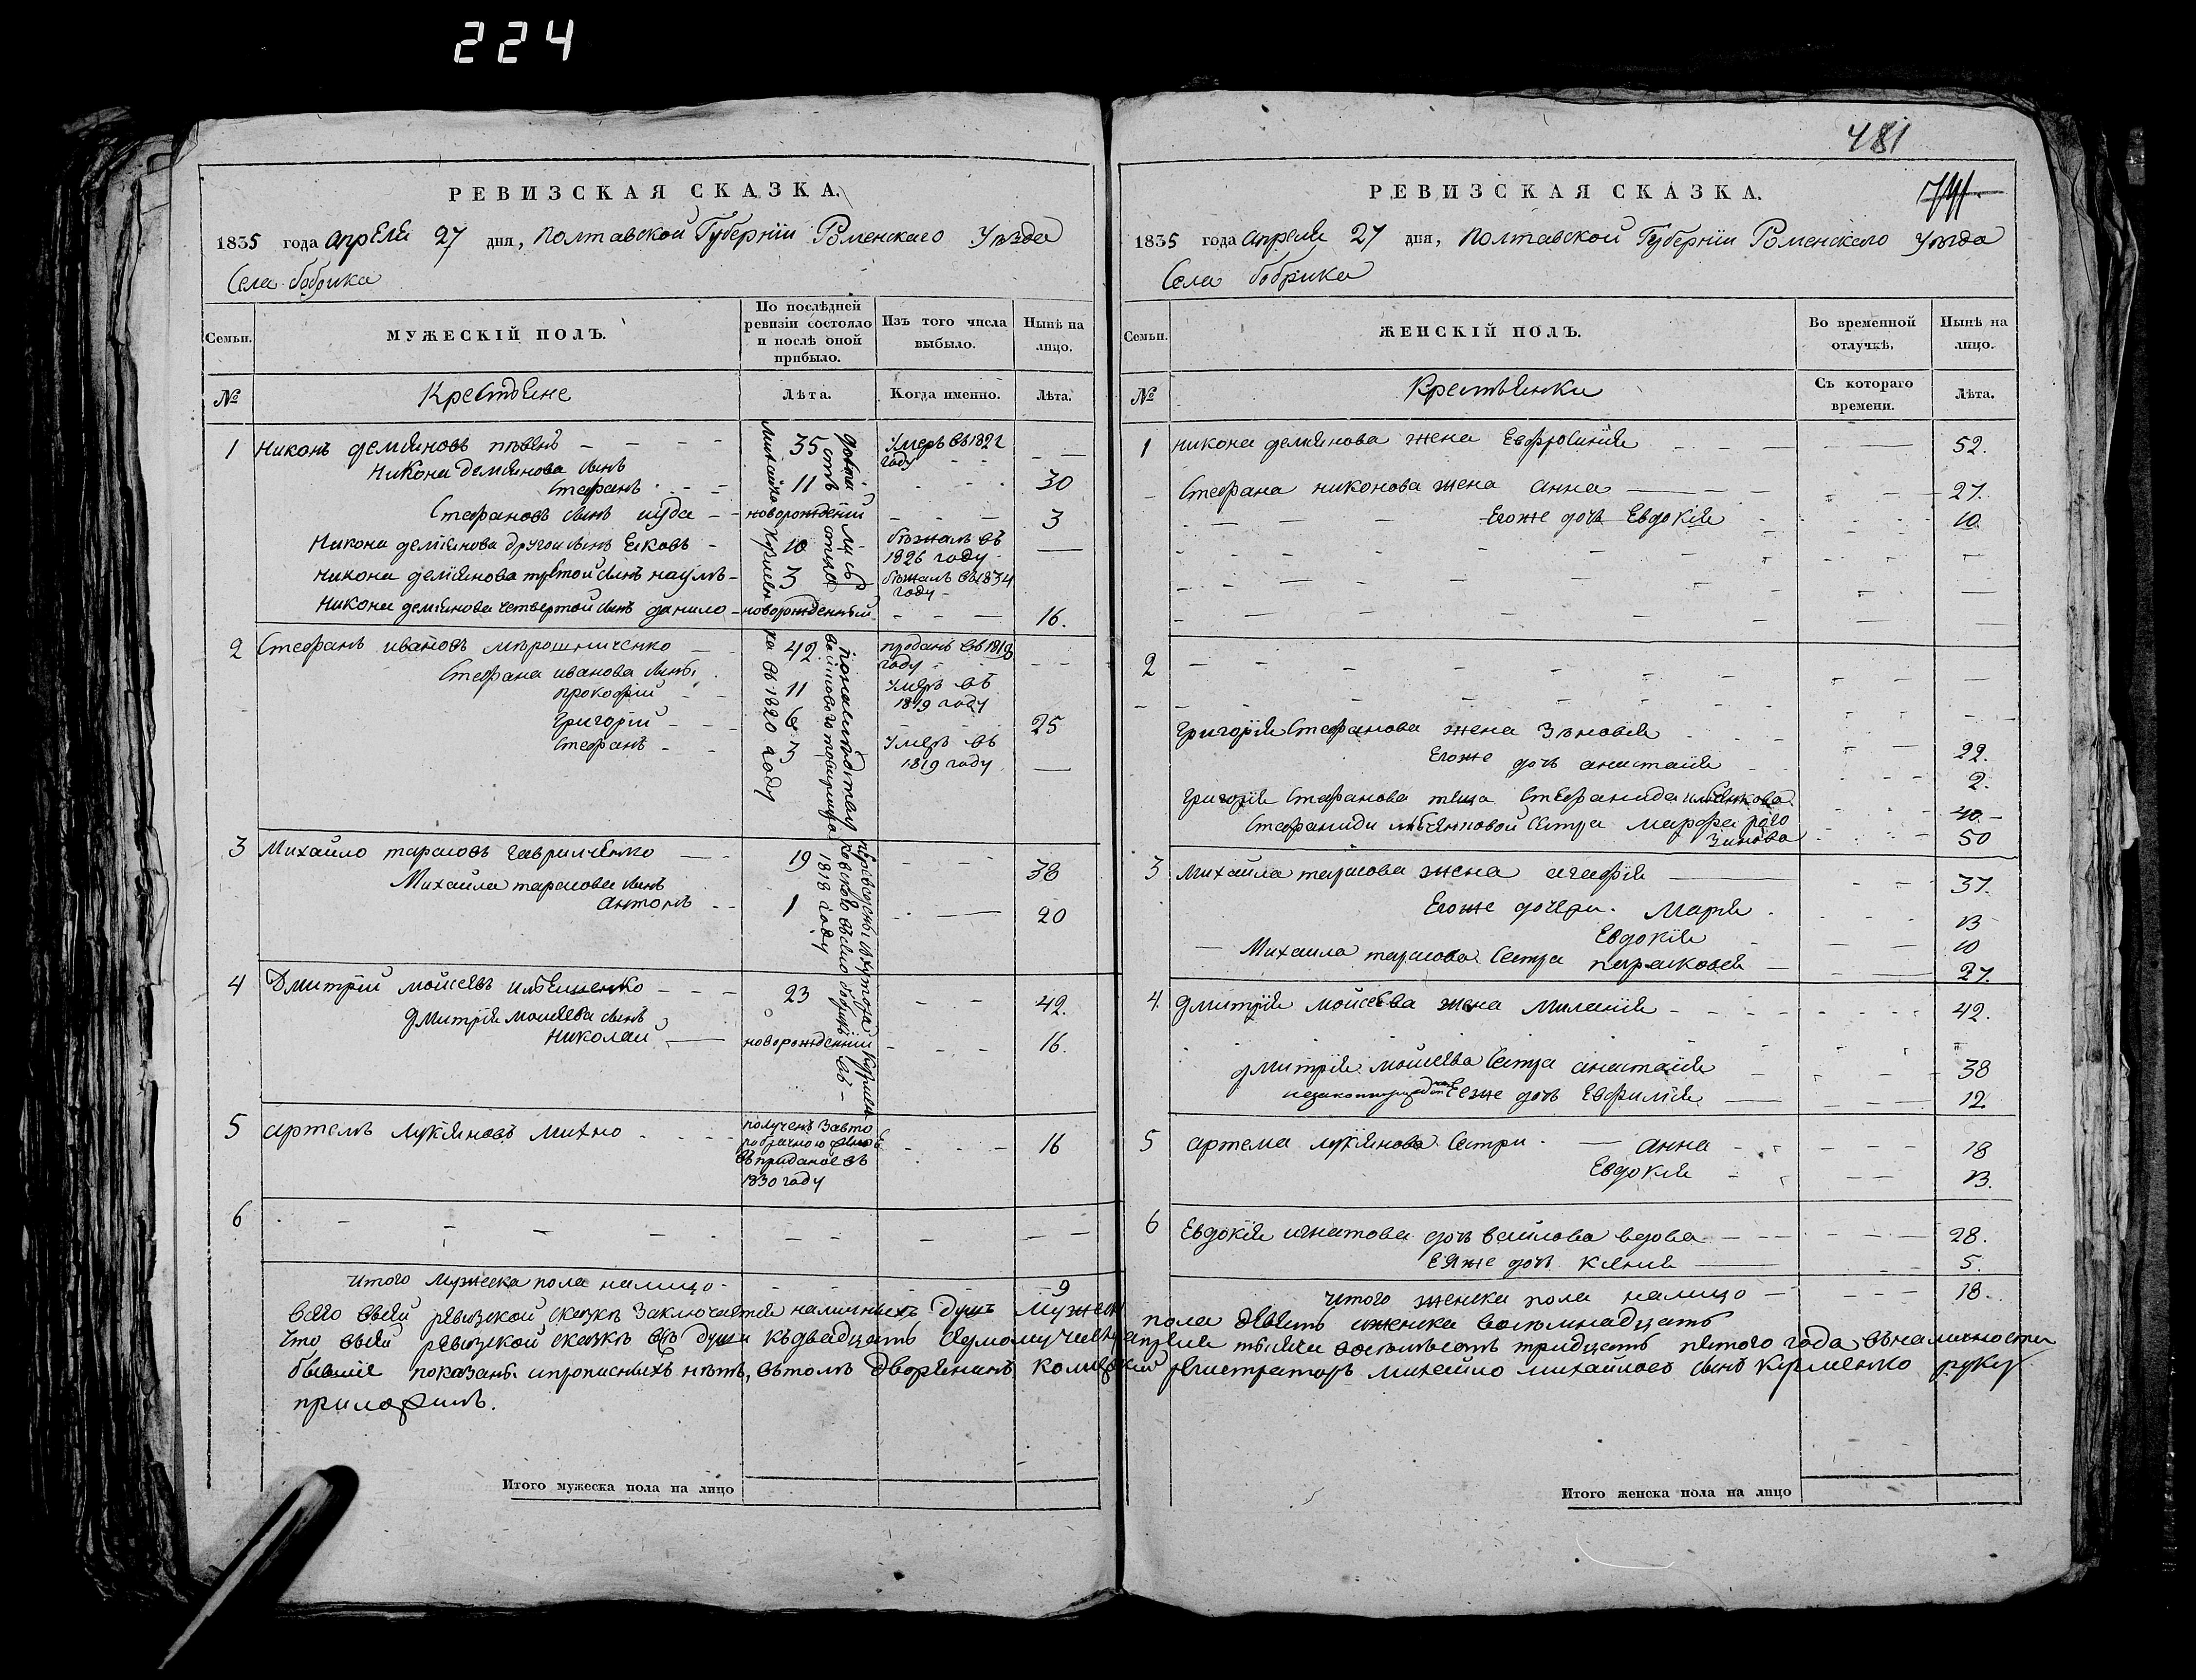 224
РЕВИЗСКАЯ СКАЗКА.
1835 года апреля 27 дня, Полтавской Губерніи Роменскаго Уѣзда
Села бобрика
Семьи.
МУЖЕСКІЙ ПОЛЪ.
По послѣдней ревизіи состояло и послѣ оной прибыло.
Изъ того числа выбыло.
Нынѣ на лицо.
№
Крестьяне
Лѣта.
Когда именно.
Лѣта.
1 Никонъ демяновъ – – – 35 Умеръ въ 1822 году – –
Никона Демянова сынъ
Стефанъ – – 11 – – – 30
Стефановъ сынъ иуда – – новорожденіи – – – 3
Никона демянова другои сынъ Яковъ – 10 бѣжалъ въ 1826 году – —
Никона демянова третой сынъ наумъ – 3 бѣжалъ въ 1834 году –
Никона демянова четвертой сынъ данило – новорожденный – – – 16.
2 Стефанъ ивановъ мѣрошниченко – – 42 проданъ въ 1818 году – – –
Стефана иванова сынъ
прокофій – – 11 умеръ въ 1819 году
григорій – – 6 – – – 25
стефанъ – – 3 умеръ въ 1819 году —
3 Михайло тарасовъ гавриленко — – 19 – – – 38
Михаила тарасова сынъ
антонъ – – 1 – – — 20
4 Дмитрій мойсеевъ – – – 23 – – 42.
дмитрія моисеева сынъ
николай — новорожденніи – – – 16.
5 артемъ лукяновъ михно – – – получен въ приданое въ 1830 году – – – 16
6 – – – – – – – – – –
ка въ 1820 году
1818 году
итого мужеска пола налицо – – – – – 9
Итого мужеска пола на лицо
481
РЕВИЗСКАЯ СКАЗКА.
1835 года апреля 27 дня, Полтавской Губерніи Роменскаго Уѣзда
Села бобрика
Семьи.
ЖЕНСКІЙ ПОЛЪ.
Во временной отлучкѣ.
Нынѣ на лицо.
№
Крестьянки
Съ котораго времени.
Лѣта.
1 никона демянова жена Евфросинія – – – – — 52.
– Стефана никонова жена анна — – – – – 27.
– – – – Егоже дочь Евдокія – – – – 10.
2 – – – – – – –
григорія Стефанова жена Зѣновія – – – – — 22.
Егоже дочь анастасія – – – 2.
григорія стефанова теща Стефанида – – – 40. –
Стефаниди сестра марфа – – – 50
3 Михаила тарасова жена агафія — – – 37.
Егоже дочери. Марія. – – – 13
Евдокія – — — 10
— Михаила тарасова сестра параковея — – — 27.
4. дмитрія мойсеева жена миланія – – – – – – – 42.
дмитрія моисеева сестра анастасія – – – — 38
Еяже дочъ Евфимія — – – – 12.
5 артема лукянова сестри. — анна – – – – – 18
Евдокія – – – – 13.
6 Евдокія игнатова дочъ вдова – – – – – — 28.
Еяже дочъ Ксенія — – – 5.
итого женска пола налицо – – – – 18.
всего въсей ревизской сказкѣ заключается наличныхъ душъ мужеска пола девять иженска восемнадцать
Что въсей ревизской сказкѣ всѣ души къдвадцать седмому числу апреля тысяча восемьсотъ тридцать пятого года въналичности
бывшіе показаны ипрописныхъ нѣтъ, вътомъ Дворянинъ колежскій регистраторъ михайло михайловъ сынъ руку
приложилъ.
Итого женска пола на лицо